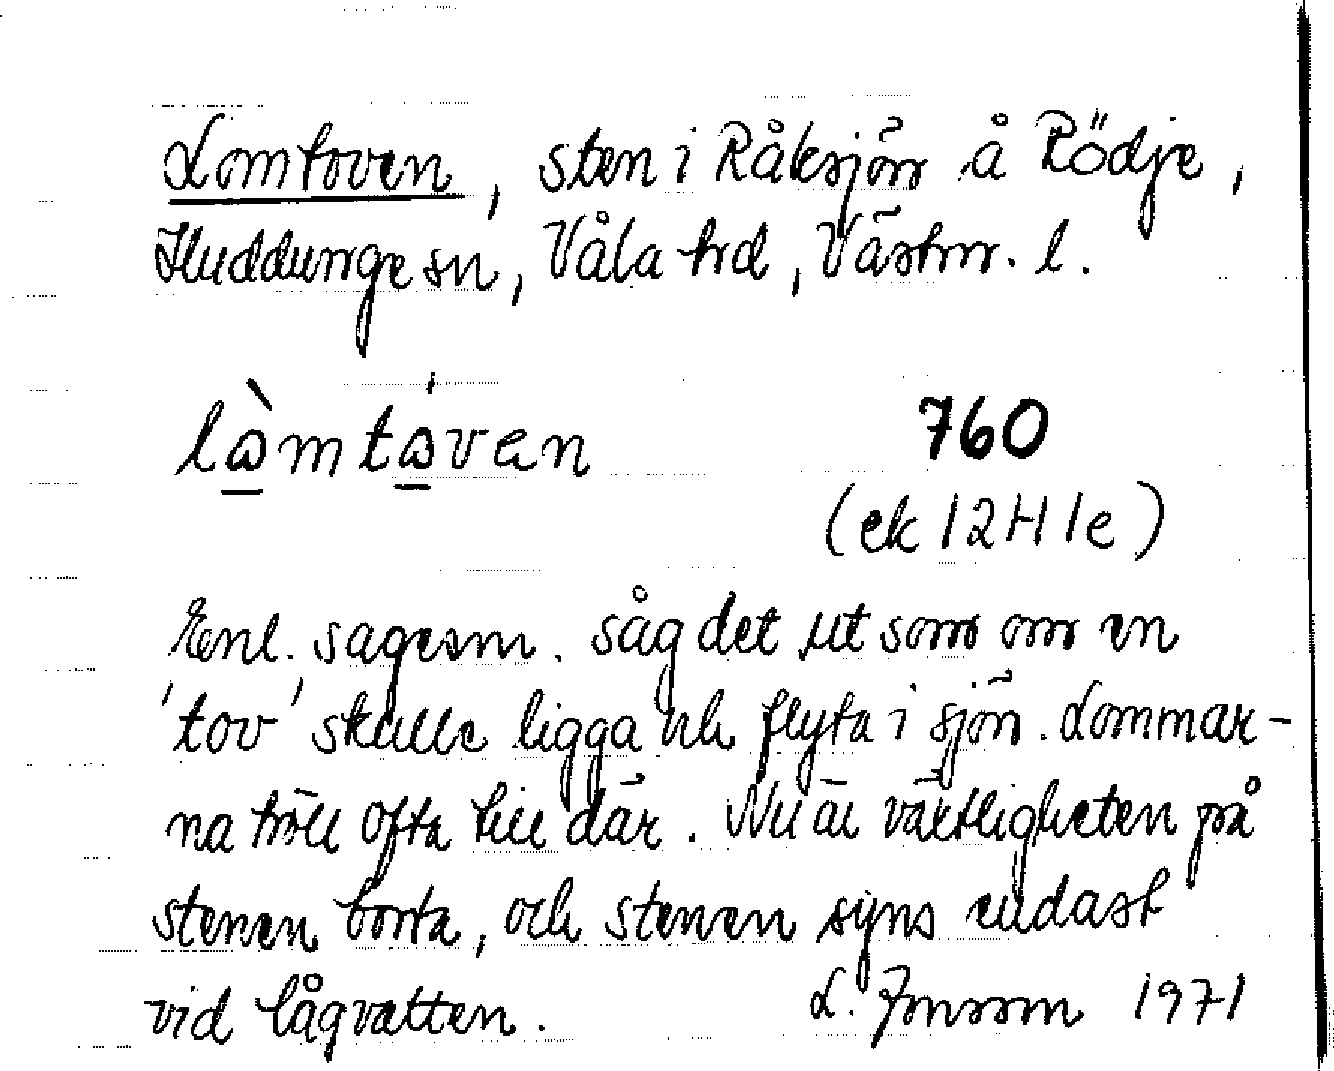 Lomtoven, sten i Råksjön å Rödje,
Huddunge sn, Våla hd, Västm. l.
lò̱mtå̱ven
760
(ek 12H1e)
Enl. sagesm. såg det ut som om en
'tov' skulle ligga och flyta i sjön. Lommar-
na höll ofta till där. Nu är växtligheten på
stenen borta, och stenen syns endast
vid lågvatten.
L. Jonsson 1971